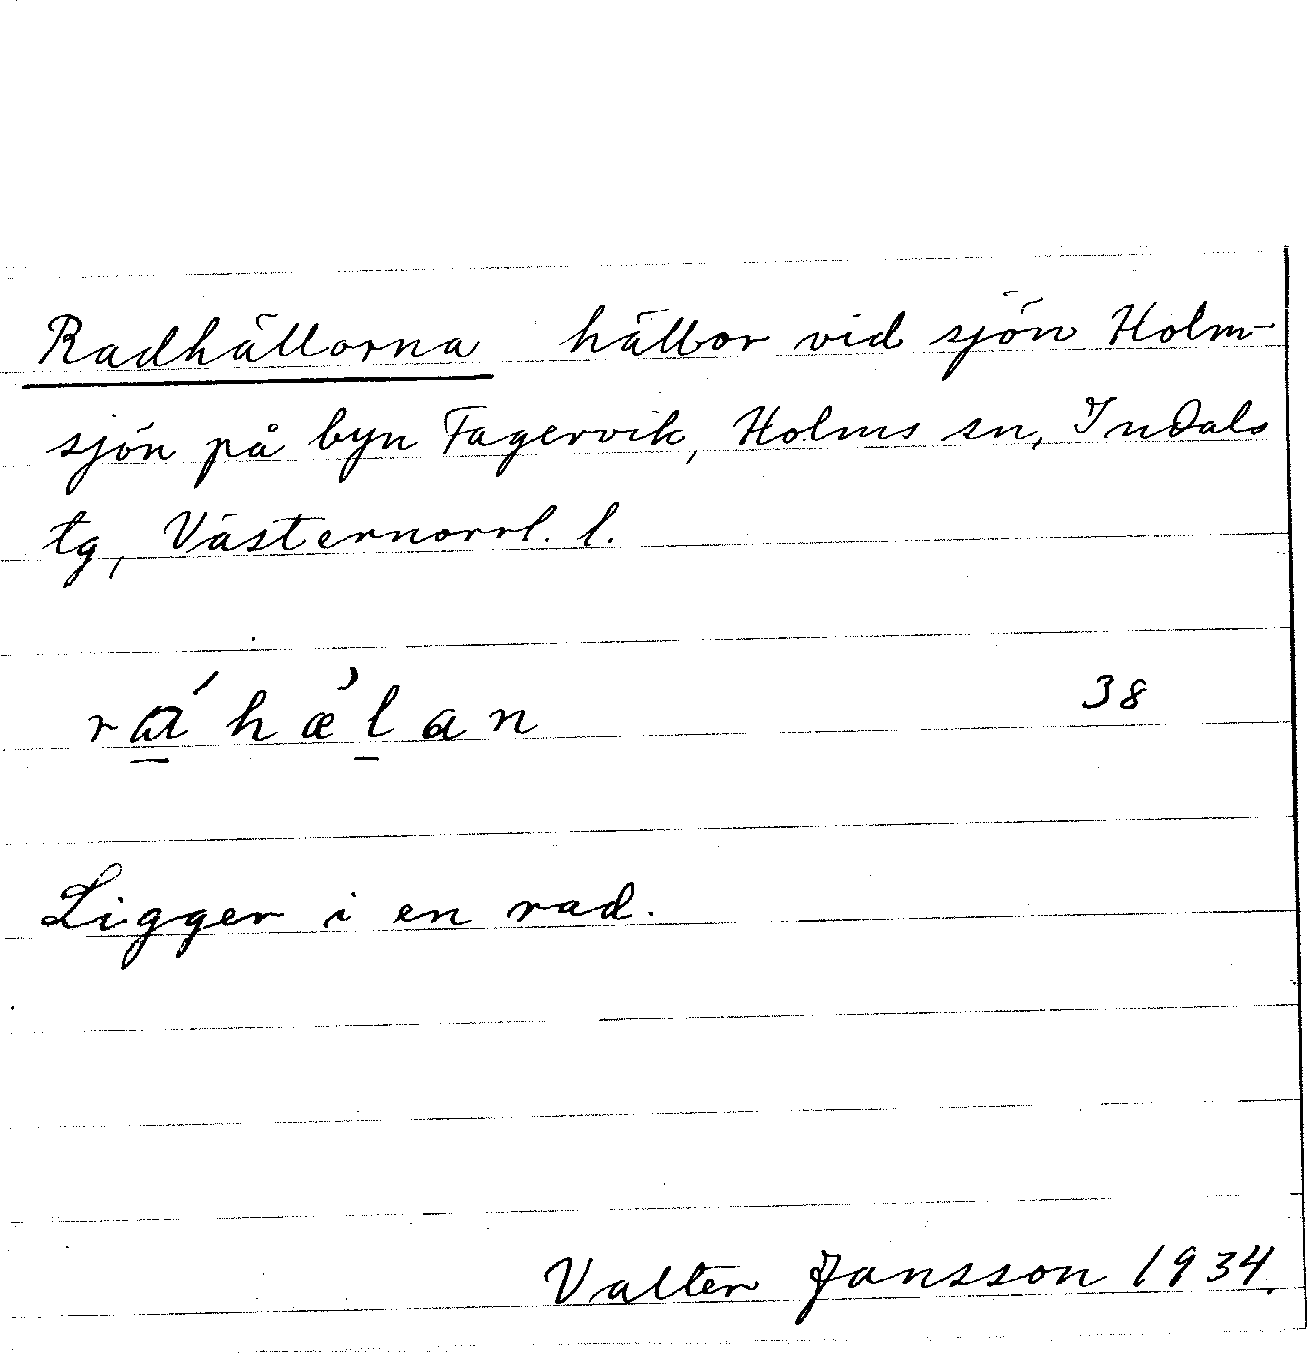 Radhällorna hällor vid sjön Holm-
sjön på byn Fagervik, Holms sn, Indals
tg, Västernorrl. l.
rá̱hæ̀ḻan 38
Ligger i en rad.
Valter Jansson 1934.